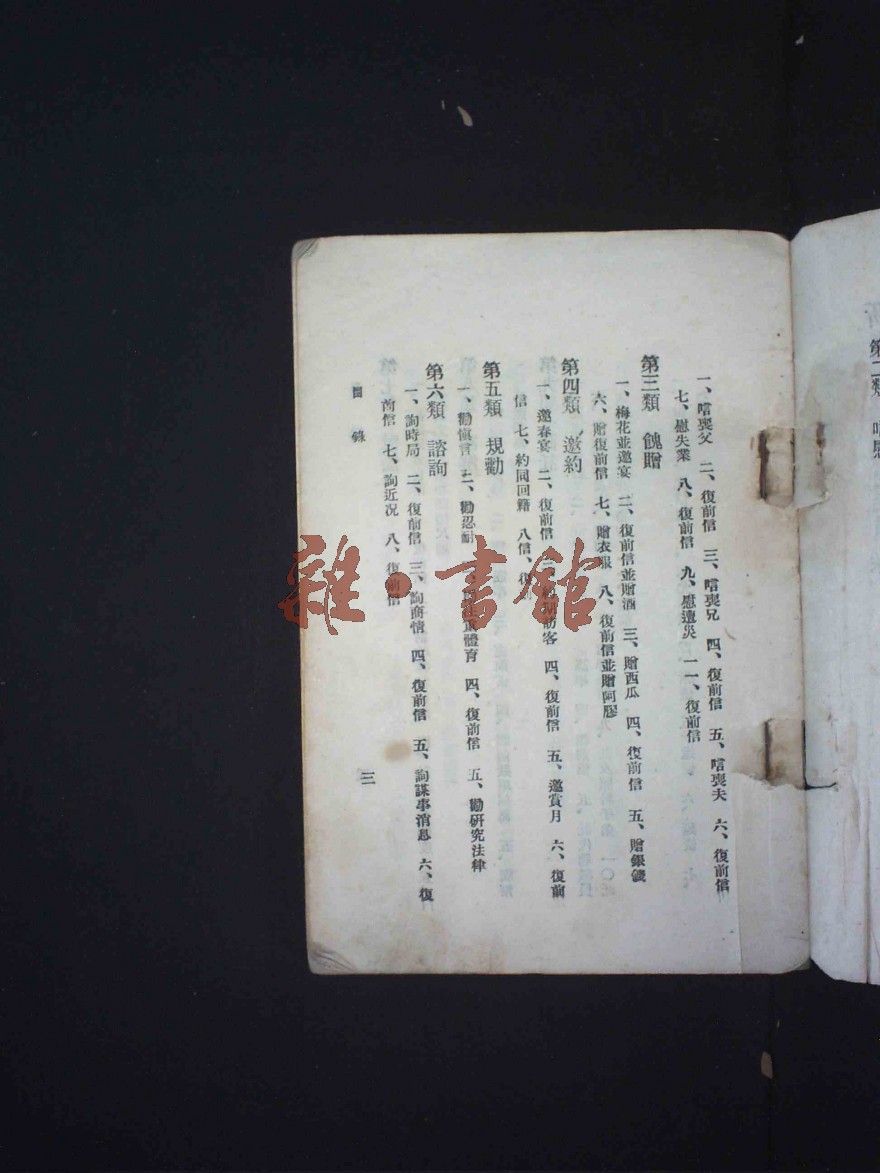 第二類
一、唁喪父　二、復前信　三、唁喪兄　四、復前信　五、唁喪夫　六、復前信
七、慰失業　八、復前信　九、慰遭災　一一、復前信
第三類　餽贈
一、梅花並邀宴　二、復前信並贈酒　三、贈西瓜　四、復前信　五、贈銀錢
六、贈復前信　七、贈衣服　八、復前信並贈阿膠
第四類　邀約
一、邀春宴　二、復前信　訪客　四、復前信　五、邀賞月　六、復前
信　七、約同回籍　八信、復
第五類　規勸
一、勸慎言　二、勸忍耐　體育　四、復前信　五、勸研究法律
第六類　諮詢
一、詢時局　二、復前信　三、詢商情　四、復前信　五、詢謀事消息　六、復
前信　七、詢近况　八、復前信
目錄
三
雜·書館